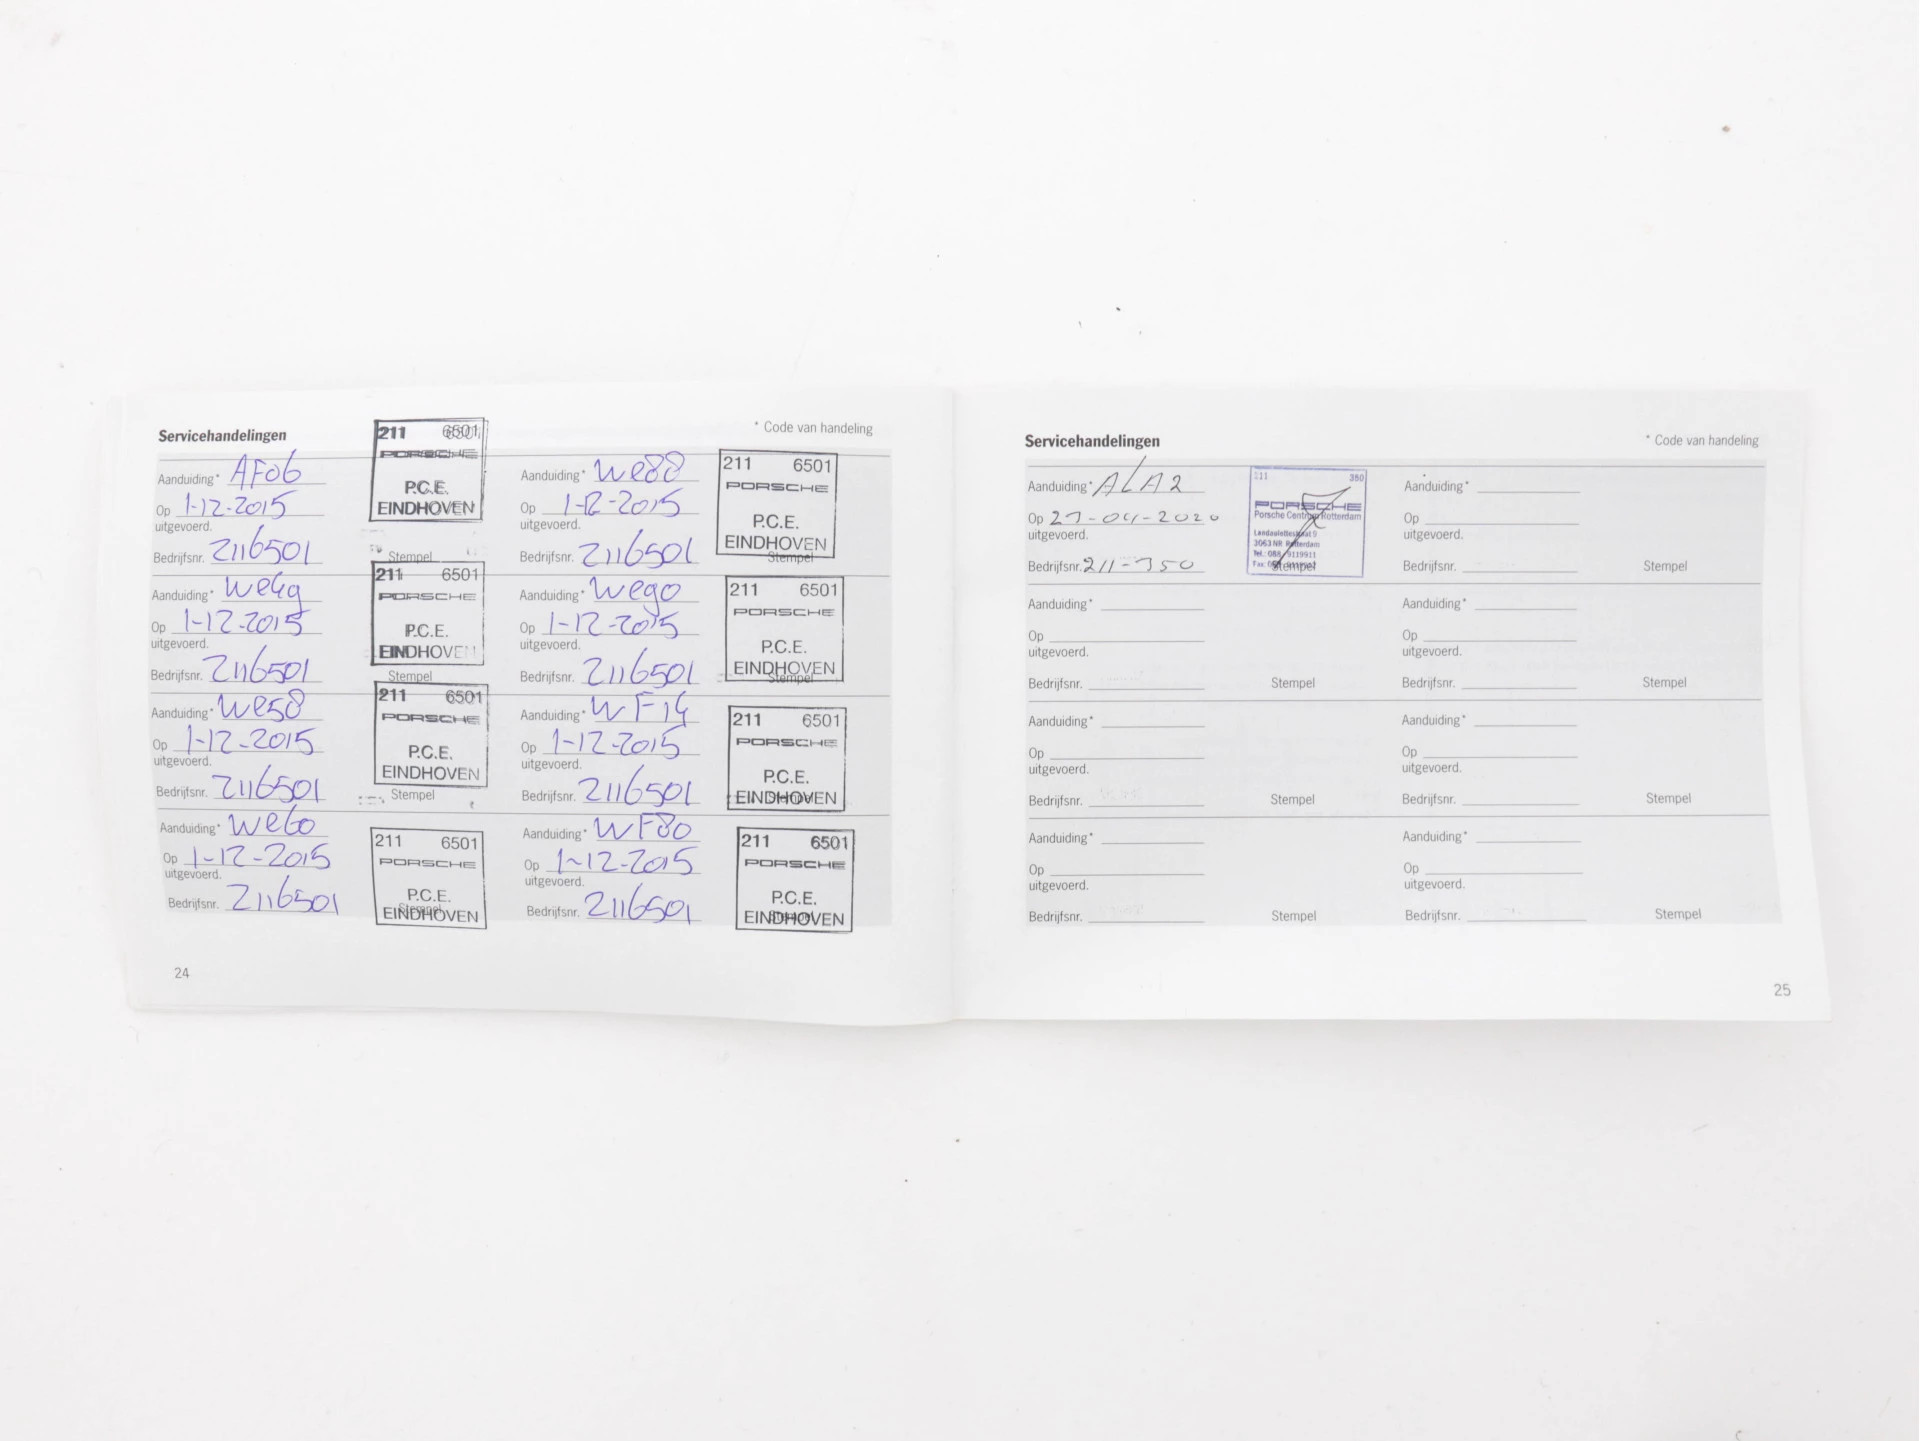 Servicehandelingen
* Code van handeling
Aanduiding* AF06
Op 1-12-2015
uitgevoerd.
Bedrijfsnr. 2116501
Stempel
211 6501
PORSCHE
P.C.E.
EINDHOVEN
Aanduiding* We88
Op 1-12-2015
uitgevoerd.
Bedrijfsnr. 2116501
Stempel
211 6501
PORSCHE
P.C.E.
EINDHOVEN
Aanduiding* We4g
Op 1-12-2015
uitgevoerd.
Bedrijfsnr. 2116501
Stempel
211 6501
PORSCHE
P.C.E.
EINDHOVEN
Aanduiding* Wego
Op 1-12-2015
uitgevoerd.
Bedrijfsnr. 2116501
Stempel
211 6501
PORSCHE
P.C.E.
EINDHOVEN
Aanduiding* We58
Op 1-12-2015
uitgevoerd.
Bedrijfsnr. 2116501
Stempel
211 6501
PORSCHE
P.C.E.
EINDHOVEN
Aanduiding* WF14
Op 1-12-2015
uitgevoerd.
Bedrijfsnr. 2116501
Stempel
211 6501
PORSCHE
P.C.E.
EINDHOVEN
Aanduiding* We60
Op 1-12-2015
uitgevoerd.
Bedrijfsnr. 2116501
Stempel
211 6501
PORSCHE
P.C.E.
EINDHOVEN
Aanduiding* WF80
Op 1-12-2015
uitgevoerd.
Bedrijfsnr. 2116501
Stempel
211 6501
PORSCHE
P.C.E.
EINDHOVEN
24
Servicehandelingen
* Code van handeling
Aanduiding* ALA2
Op 27-04-2020
uitgevoerd.
Bedrijfsnr. 211-350
Stempel
211 350
PORSCHE
Porsche Centrum Rotterdam
3063 NR Rotterdam
Tel.: 088 9119911
Aanduiding*
Op
uitgevoerd.
Bedrijfsnr.
Stempel
Aanduiding*
Op
uitgevoerd.
Bedrijfsnr.
Stempel
Aanduiding*
Op
uitgevoerd.
Bedrijfsnr.
Stempel
Aanduiding*
Op
uitgevoerd.
Bedrijfsnr.
Stempel
Aanduiding*
Op
uitgevoerd.
Bedrijfsnr.
Stempel
Aanduiding*
Op
uitgevoerd.
Bedrijfsnr.
Stempel
Aanduiding*
Op
uitgevoerd.
Bedrijfsnr.
Stempel
25